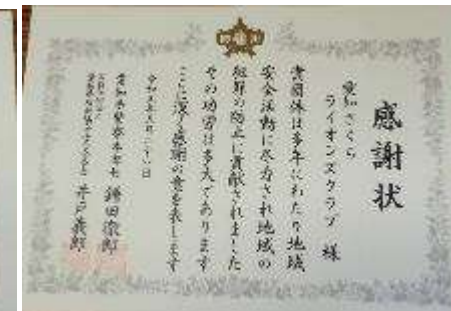 感謝状
愛知さくら
ライオンズクラブ 様
貴団体は多年にわたり地域
安全活動に尽力され地域の
犯罪の防止に貢献されました
その功労は多大であります
ここに深く感謝の意を表します
愛知県警察本部長 鎌田徹郎